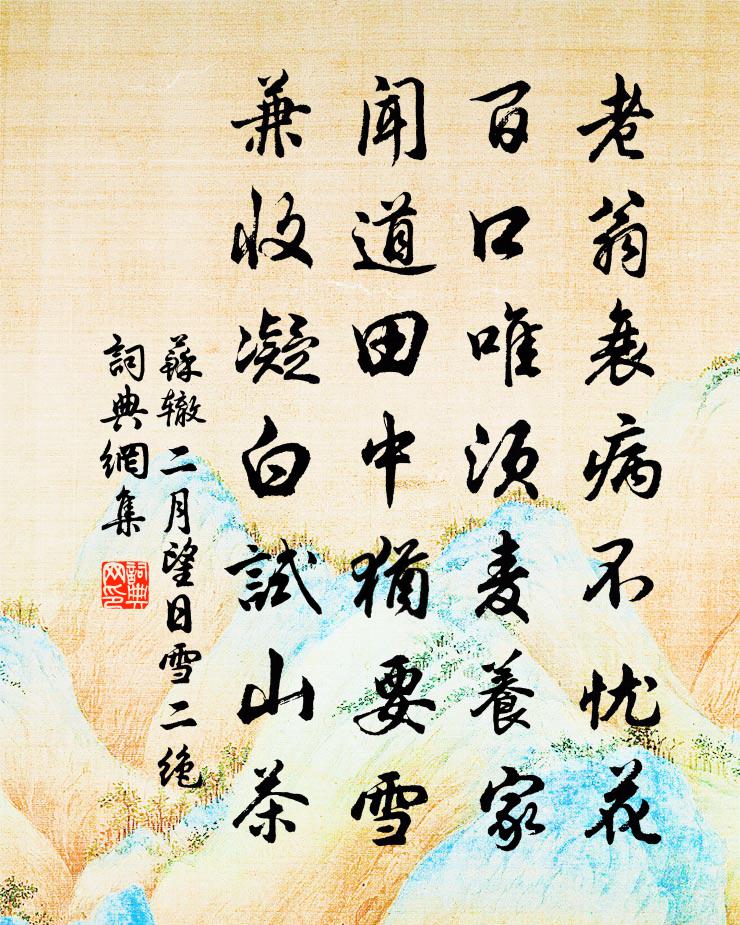 老翁衰病不忧花
百口唯须麦養家
闻道田中猶要雪
兼收凝白試山茶
蘇辙二月望日雪二绝
詞典網集
詞典网印